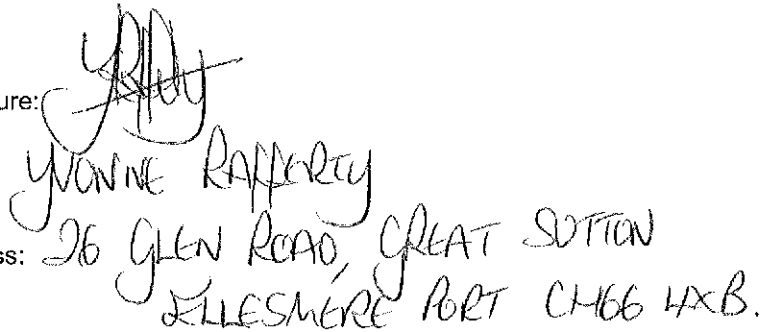 ure:
YVONNE RAFFERTY
ss: 26 GLEN ROAD, GREAT SUTTON
ELLESMERE PORT CH66 4XB.